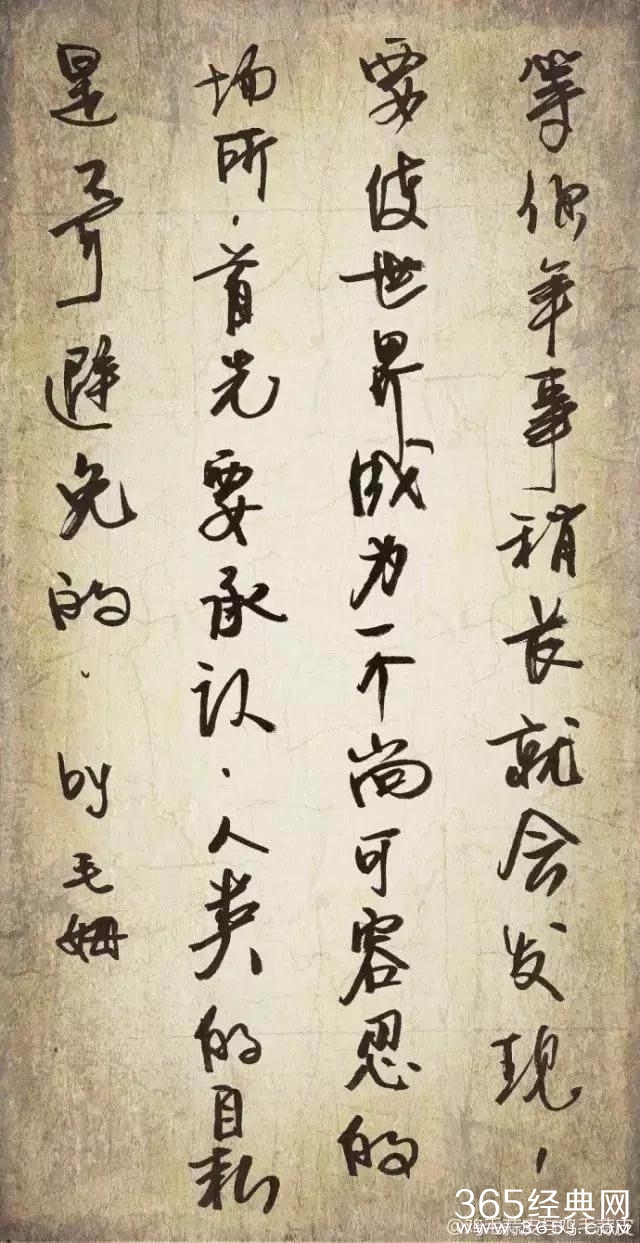 等你年事稍长就会发现，
要使世界成为一个尚可容忍的
场所.首先要承认.人类的自私
是不可避免的. by 毛姆
365经典网
www.365j.com